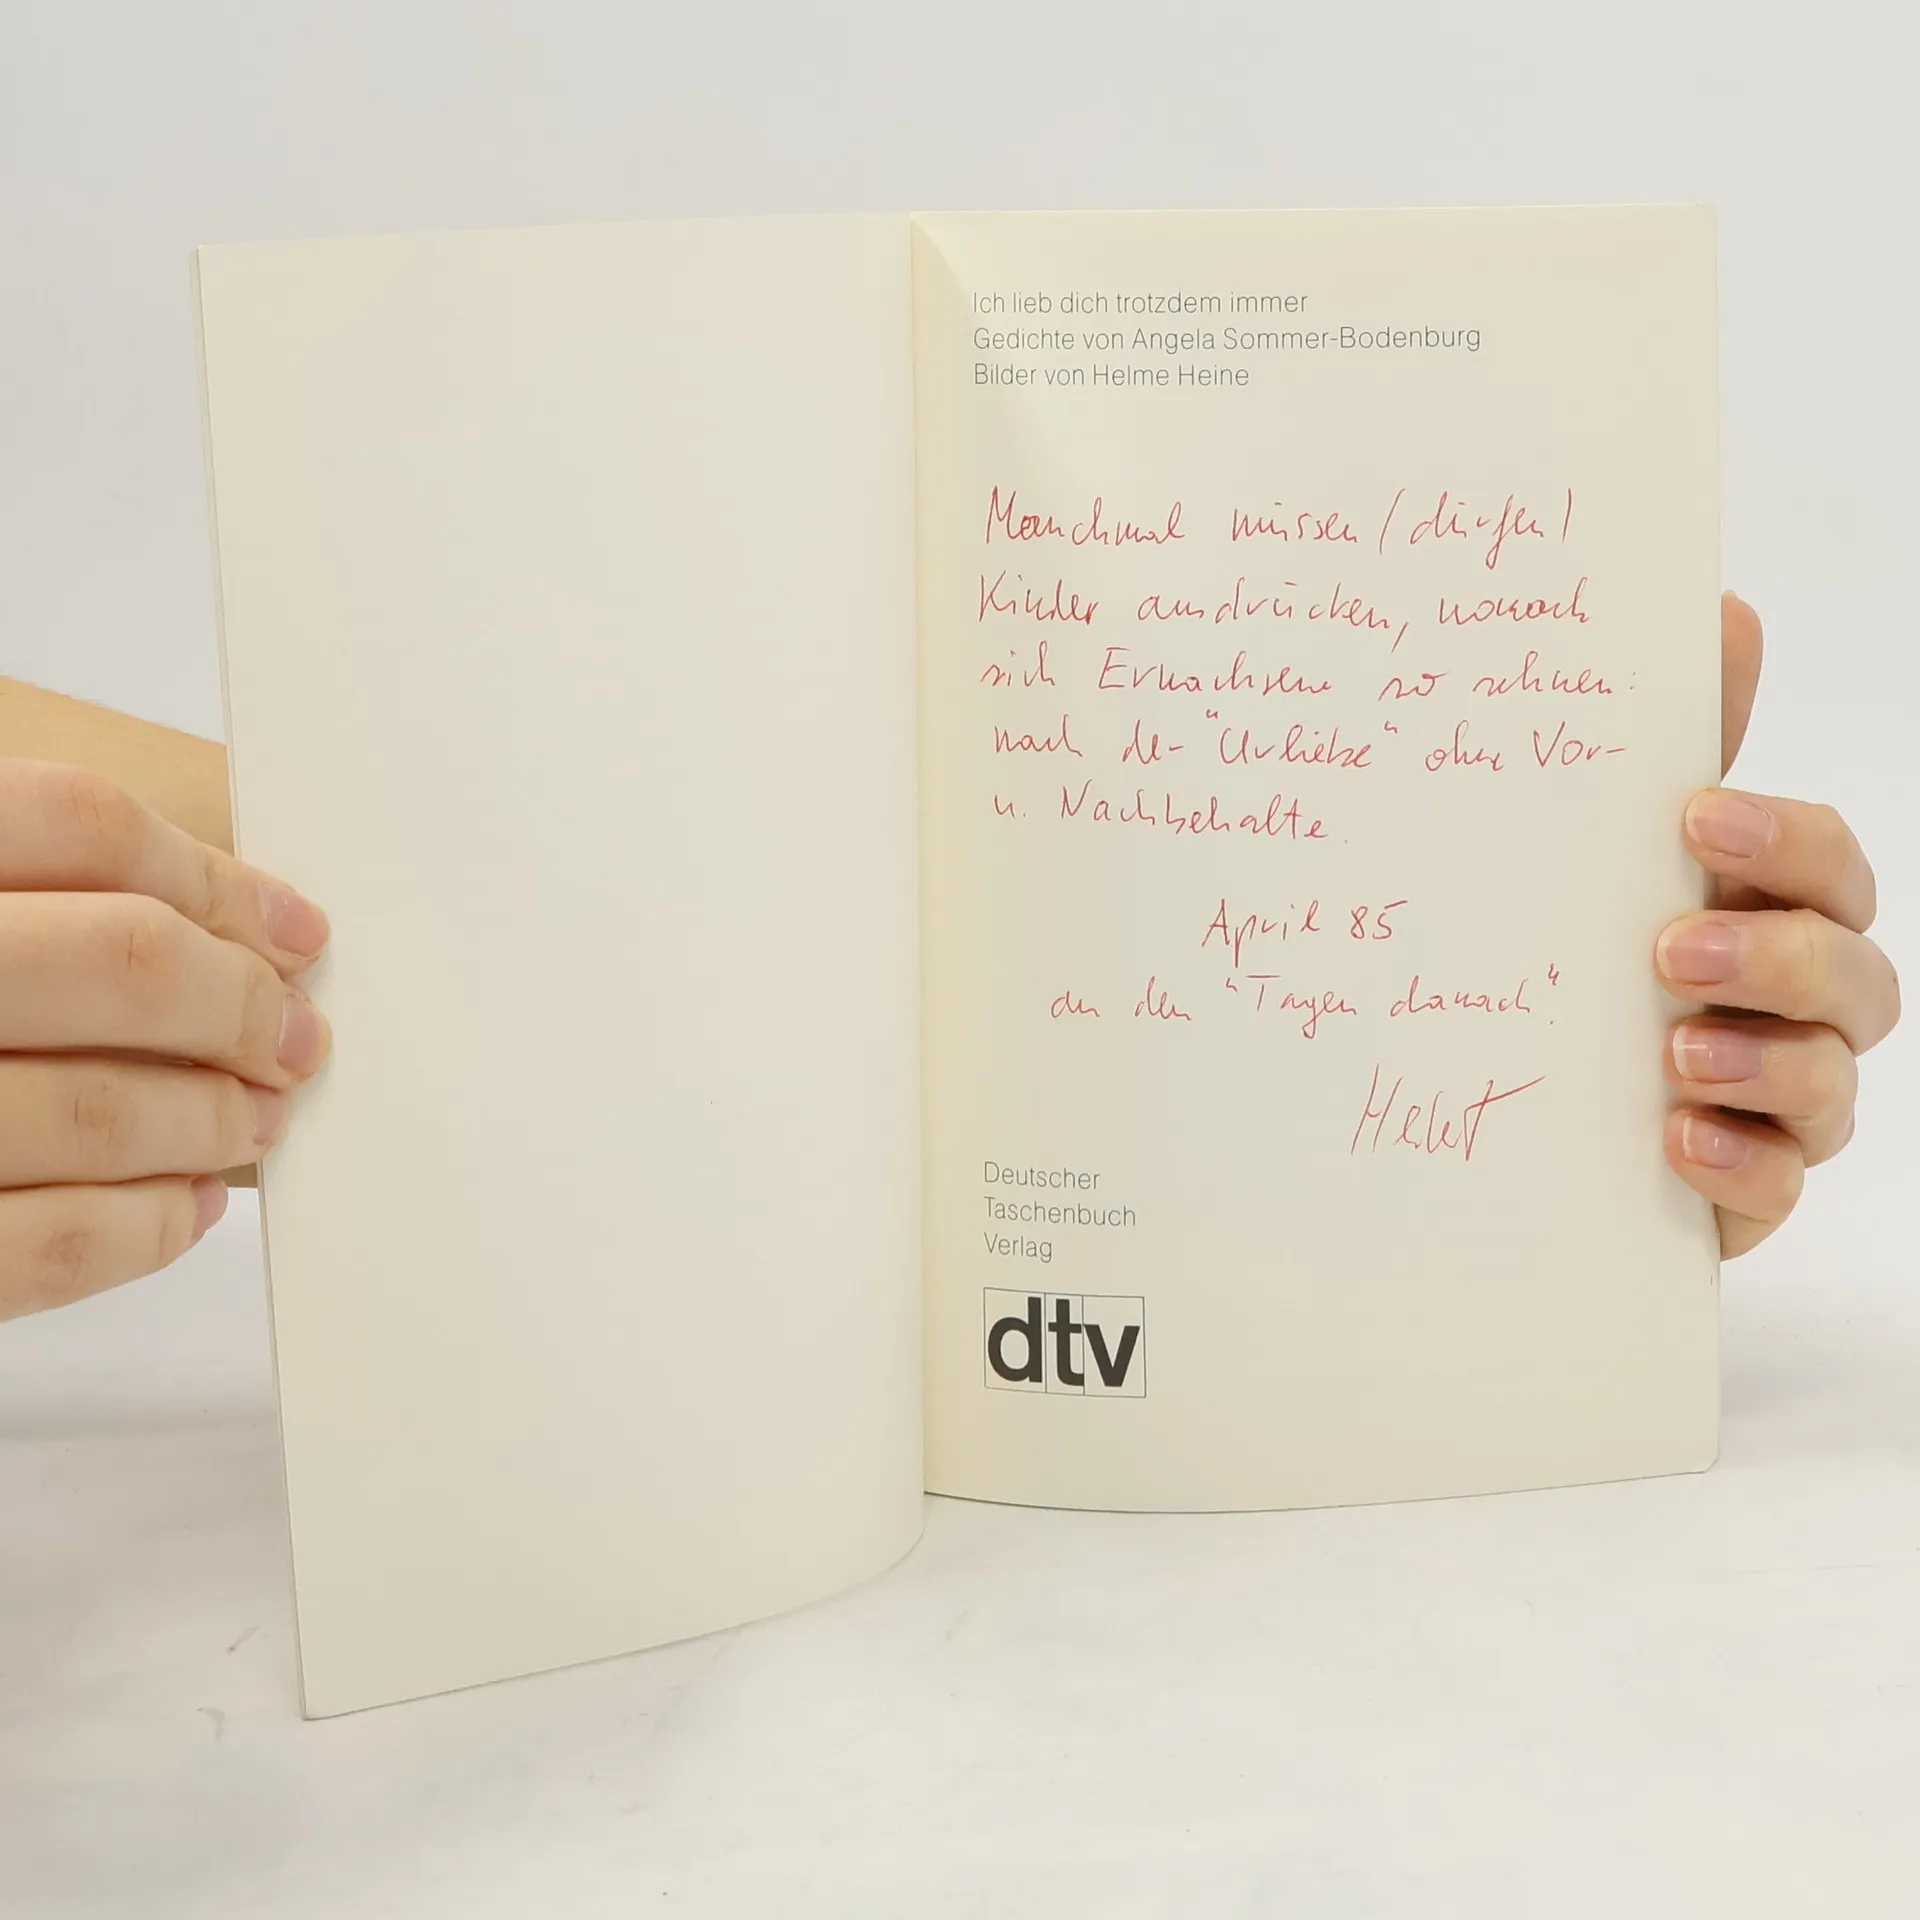 Ich lieb dich trotzdem immer
Gedichte von Angela Sommer-Bodenburg
Bilder von Helme Heine
Manchmal müssen (dürfen)
Kinder ausdrücken, wonach
sich Erwachsene so sehnen:
nach der "Urliebe" ohne Vor-
u. Nachbehalte.
April 85
an den "Tagen danach".
Deutscher
Taschenbuch
Verlag
dtv